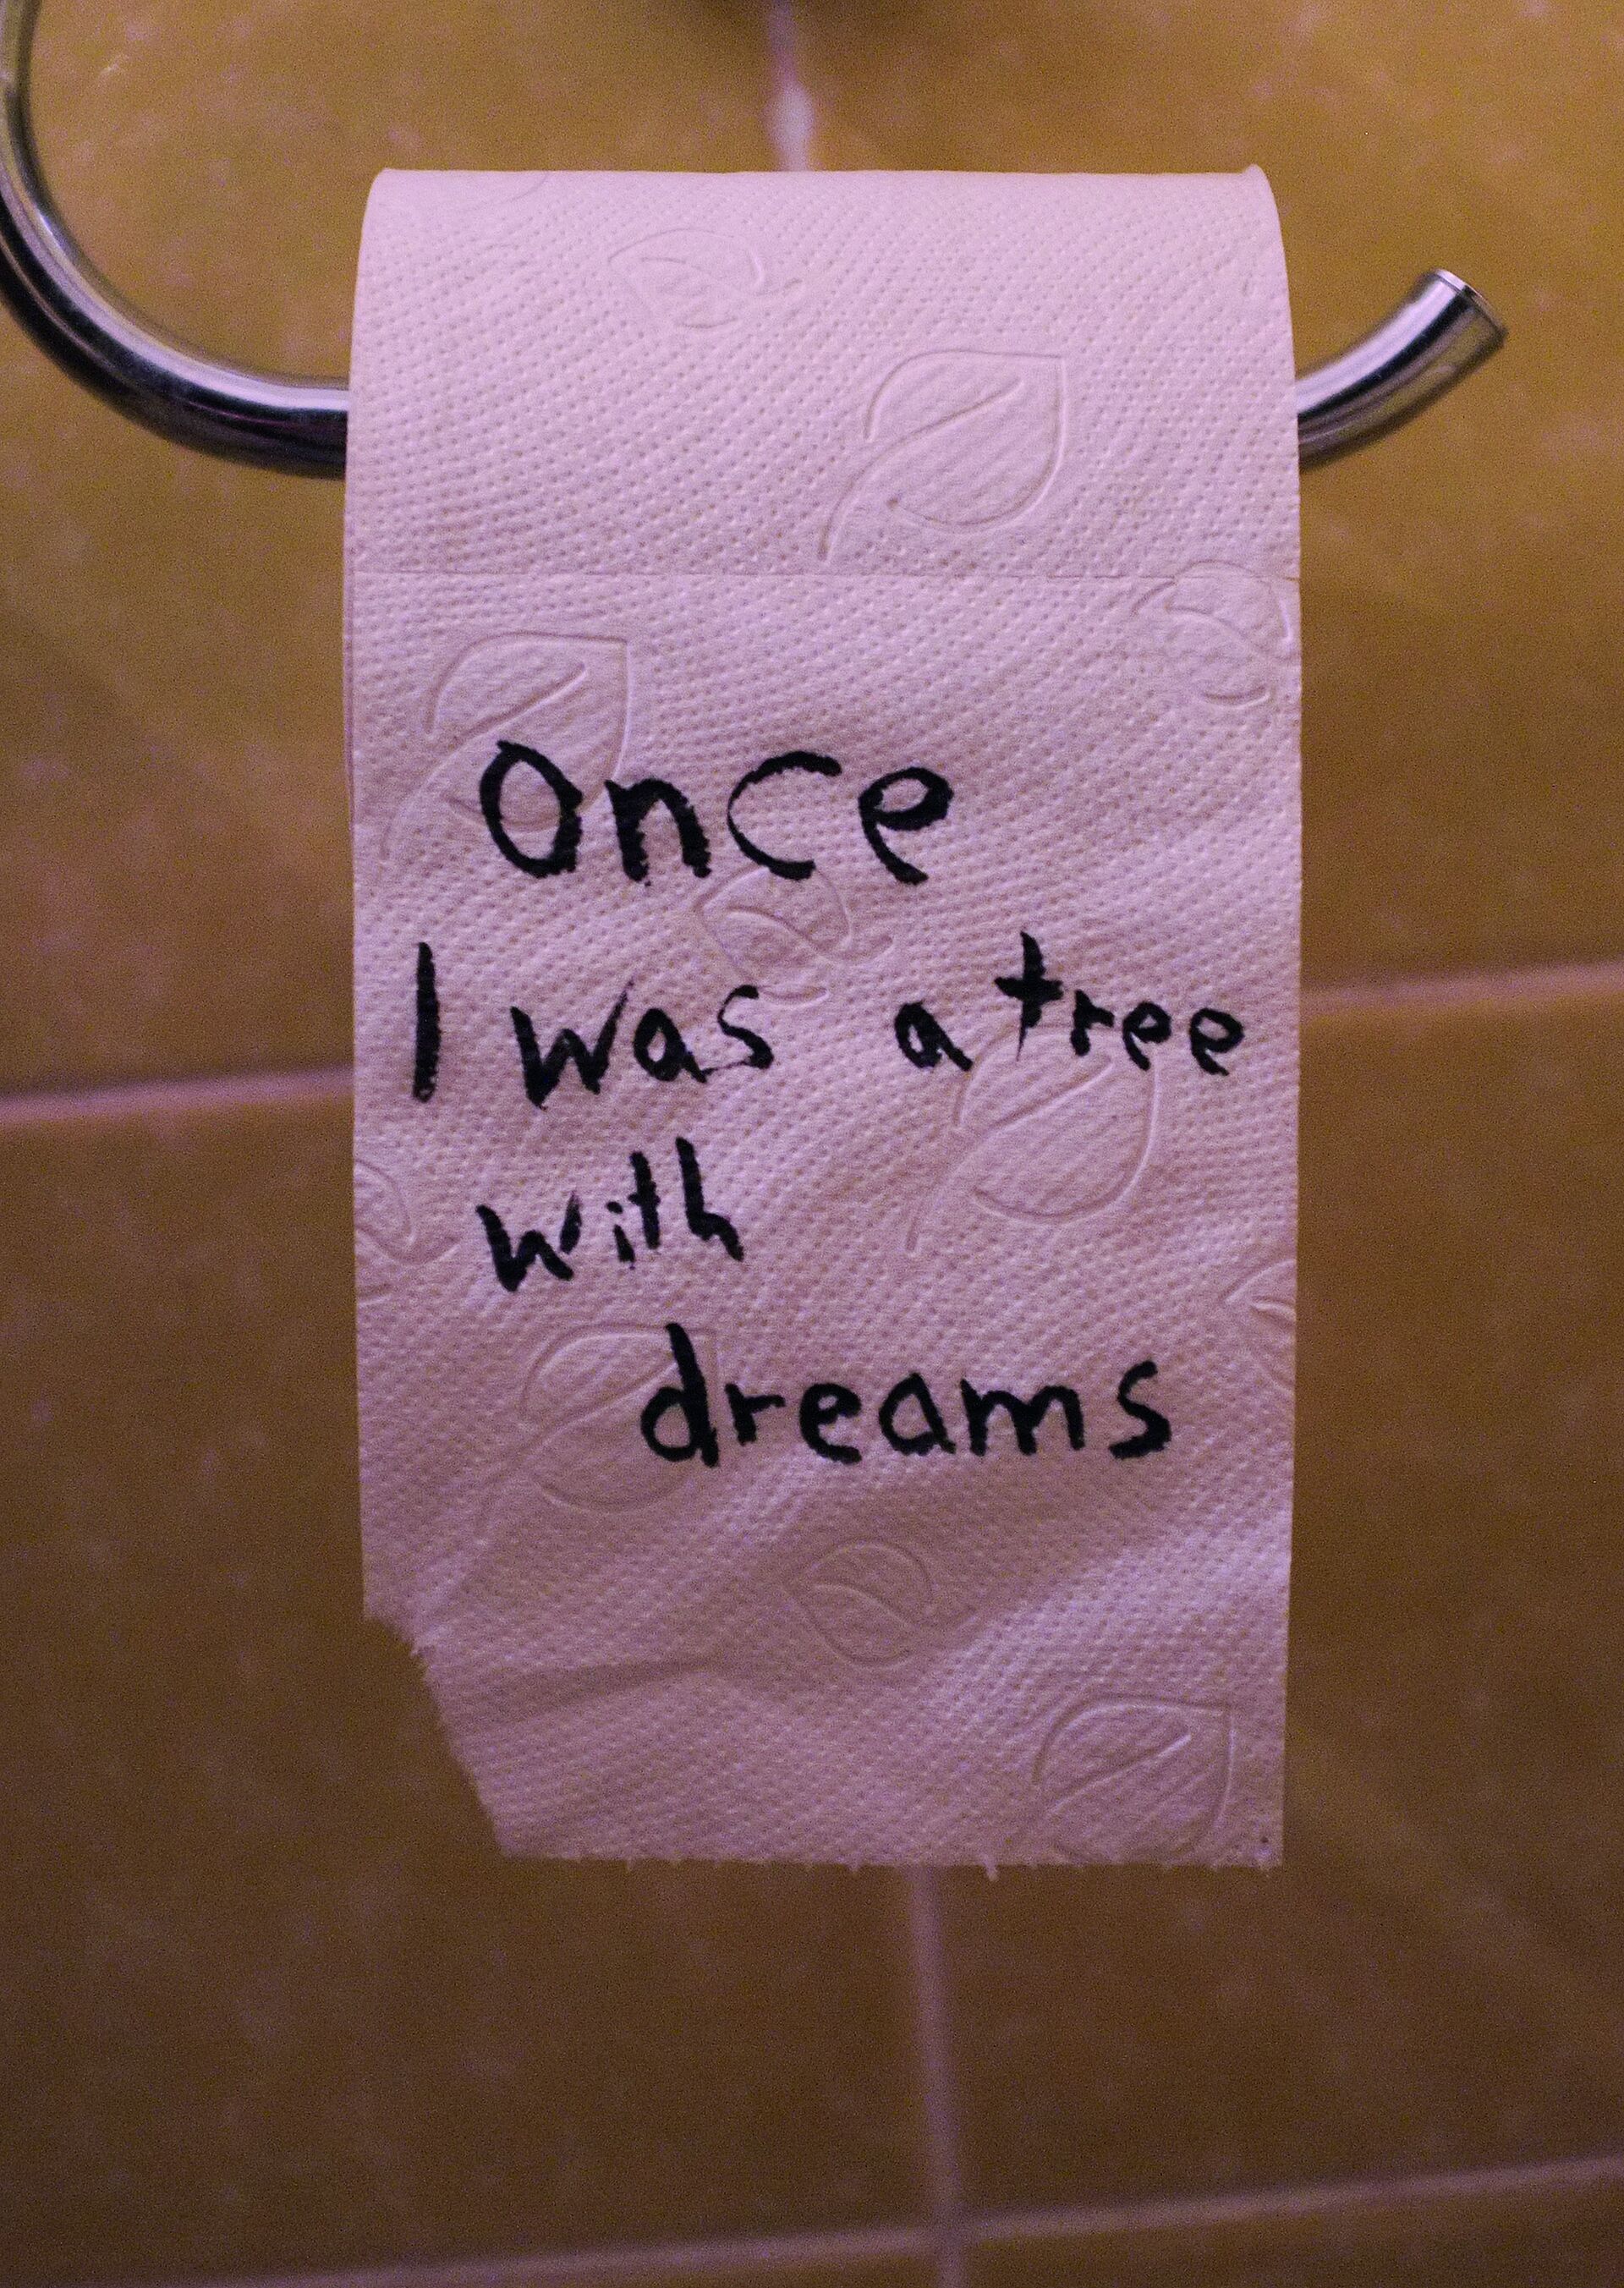 once
I was a tree
with
dreams